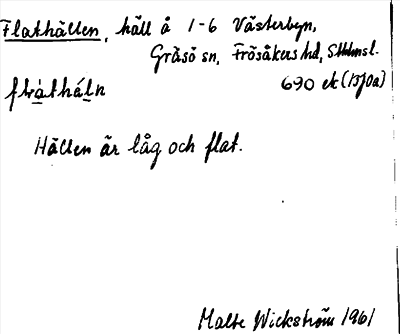 Flathällen, häll å 1-6 Västerbyn,
Gräsö sn, Frösåkers hd, Sthlmsl.
690 ek (13J0a)
Hällen är låg och flat.
Malte Wickström 1961